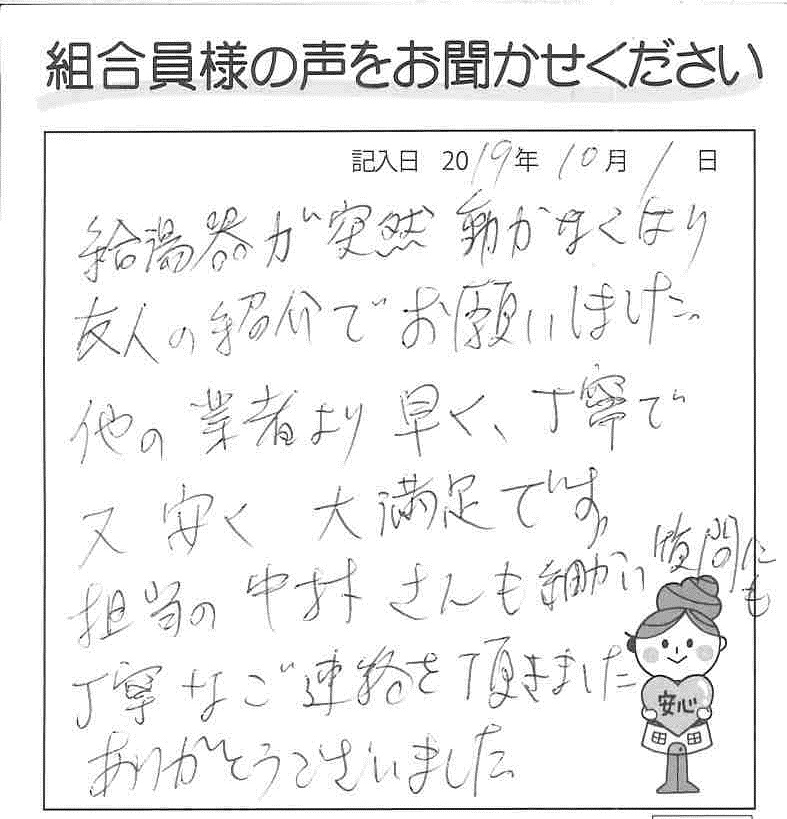 組合員様の声をお聞かせください
記入日 2019年10月1日
給湯器が突然動かなくなり
友人の紹介でお願いしました。
他の業者より早く、丁寧で
又安く大満足です。
担当の中村さんも細かい質問にも
丁寧なご連絡を頂きました
ありがとうございました
安心